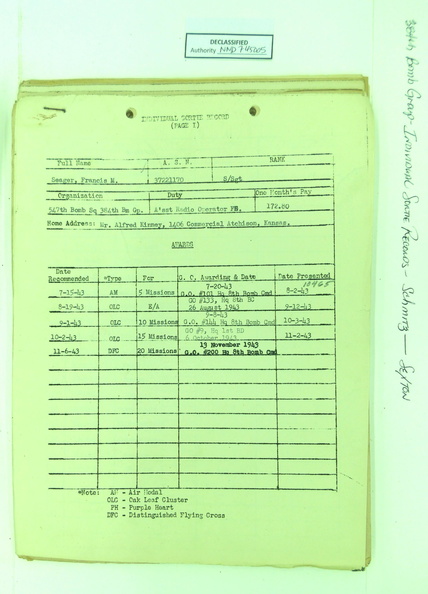 DECLASSIFIED
Authority NND 745005
384th Bomb Group - Individual Sortie Records - Schmitz — Sexton
INDIVIDUAL SORTIE RECORD
(PAGE I)
Full Name A. S. N. RANK
Seager, Francis M. 37221170 S/Sgt
Organization Duty One Month's Pay
547th Bomb Sq 384th Bm Gp. A'sst Radio Operator FB. 172.80
Home Address: Mr. Alfred Kinsey, 1406 Commercial Atchison, Kansas.
AWARDS
Date Recommended *Type For G. C. Awarding & Date Date Presented
18465
7-20-43
7-15-43 AM 5 Missions G.O. #101 Hq 8th Bomb Cmd 8-2-43
GO #133, Hq 8th BC
8-19-43 OLC E/A 26 August 1943 9-12-43
9-8-43
9-1-43 OLC 10 Missions G.O. #144 Hq 8th Bomb Cmd 10-3-43
GO #9, Hq 1st BD
10-2-43 OLC 15 Missions 6 October 1943 11-2-43
13 November 1943
11-6-43 DFC 20 Missions G.O. #200 Hq 8th Bomb Cmd
*Note: AM - Air Medal
OLC - Oak Leaf Cluster
PH - Purple Heart
DFC - Distinguished Flying Cross